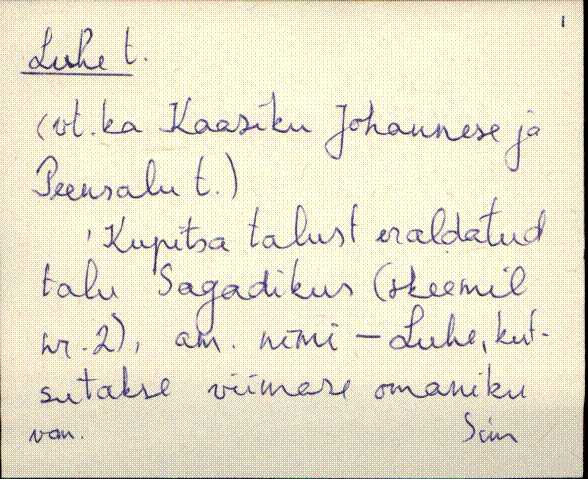 1
Luhe t.
(vt. ka Kaasiku Johannese ja
Peensalu t.)
'Kupitsa talust eraldatud
talu Sagadikus (skeemil
nr. 2), am. nimi – Luhe, kut-
sutakse viimase omaniku
van.